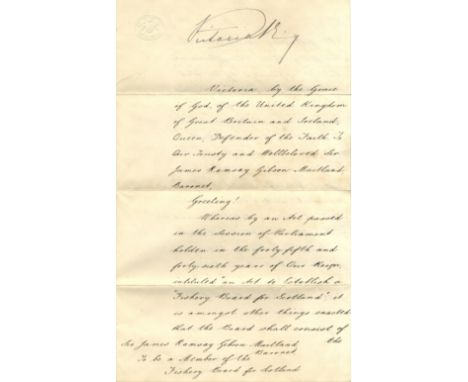 Victoria R.
Victoria by the Grace
of God, of the United Kingdom
of Great Britain and Ireland,
Queen, Defender of the Faith. To
Our Trusty and Wellbeloved Sir
James Ramsay Gibson Maitland
Baronet,
Greeting!
Whereas by an Act passed
in the Session of Parliament
holden in the forty fifth and
forty sixth years of Our Reign,
intituled "an Act to Establish a
"Fishery Board for Scotland", it
is amongst other things enacted
that the Board shall consist of
the
Sir James Ramsay Gibson Maitland
Baronet
To be a Member of the
Fishery Board for Scotland